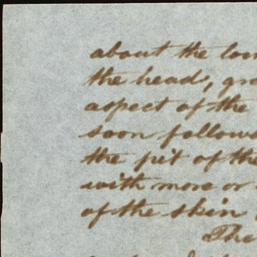 about the
the head,
aspect of the
soon follows
the pit of the
with more or
of the skin
The